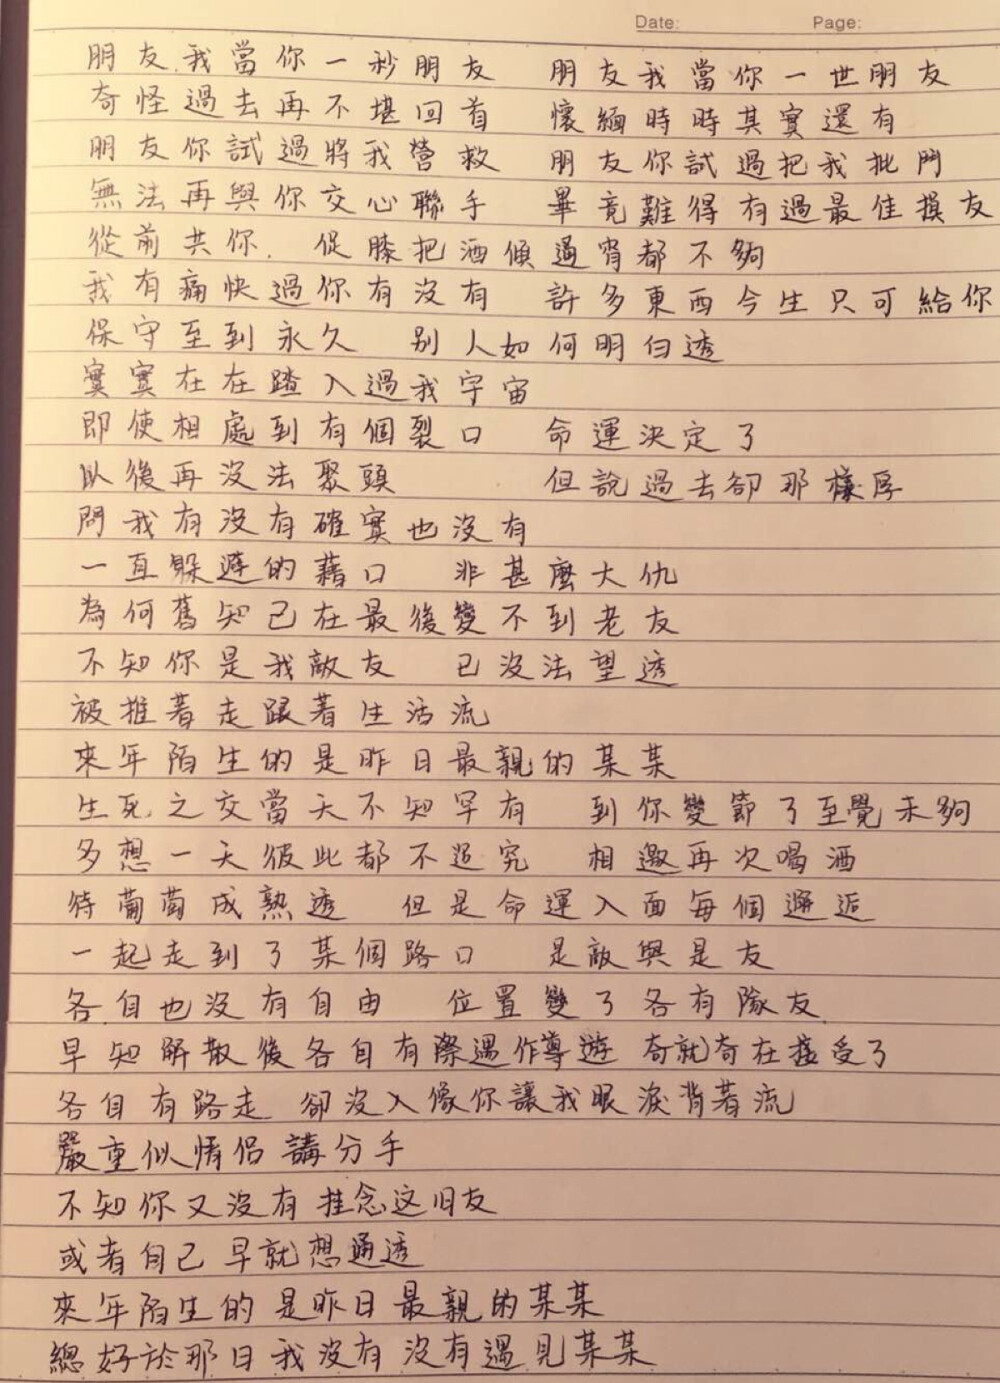 Date: Page:
朋友我當你一秒朋友 朋友我當你一世朋友
奇怪過去再不堪回首 懷緬時時其實還有
朋友你試過將我營救 朋友你試過把我批鬥
無法再與你交心聯手 畢竟難得有過最佳損友
從前共你 促膝把酒傾通宵都不夠
我有痛快過你有沒有 許多東西今生只可給你
保守至到永久 別人如何明白透
實實在在踏入過我宇宙
即使相處到有個裂口 命運決定了
以後再沒法聚頭 但說過去卻那樣厚
問我有沒有確實也沒有
一直躲避的藉口 非甚麼大仇
為何舊知己在最後變不到老友
不知你是我敵友 已沒法望透
被推著走跟著生活流
來年陌生的是昨日最親的某某
生死之交當天不知罕有 到你變節了至覺未夠
多想一天彼此都不追究 相邀再次喝酒
待葡萄成熟透 但是命運入面每個邂逅
一起走到了某個路口 是敵與是友
各自也沒有自由 位置變了各有隊友
早知解散後各自有際遇作導遊 奇就奇在接受了
各自有路走 卻沒人像你讓我眼淚背著流
嚴重似情侶講分手
不知你又沒有挂念这旧友
或者自己早就想通透
來年陌生的是昨日最親的某某
總好於那日我沒有沒有遇見某某